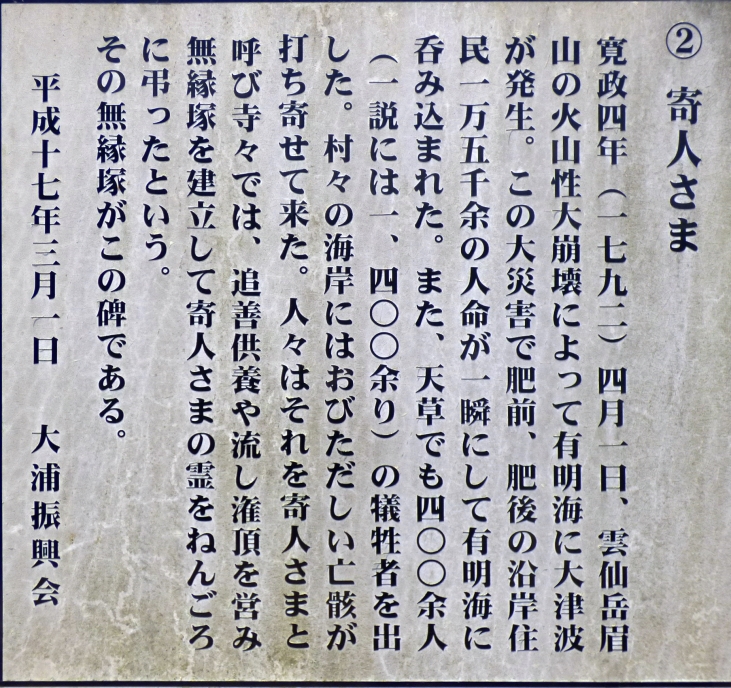 ② 寄人さま
寛政四年（一七九二）四月一日、雲仙岳眉
山の火山性大崩壊によって有明海に大津波
が発生。この大災害で肥前、肥後の沿岸住
民一万五千余の人命が一瞬にして有明海に
呑み込まれた。また、天草でも四〇〇余人
（一説には一、四〇〇余り）の犠牲者を出
した。村々の海岸にはおびただしい亡骸が
打ち寄せて来た。人々はそれを寄人さまと
呼び寺々では、追善供養や流し潅頂を営み
無縁塚を建立して寄人さまの霊をねんごろ
に弔ったという。
その無縁塚がこの碑である。
平成十七年三月一日 大浦振興会